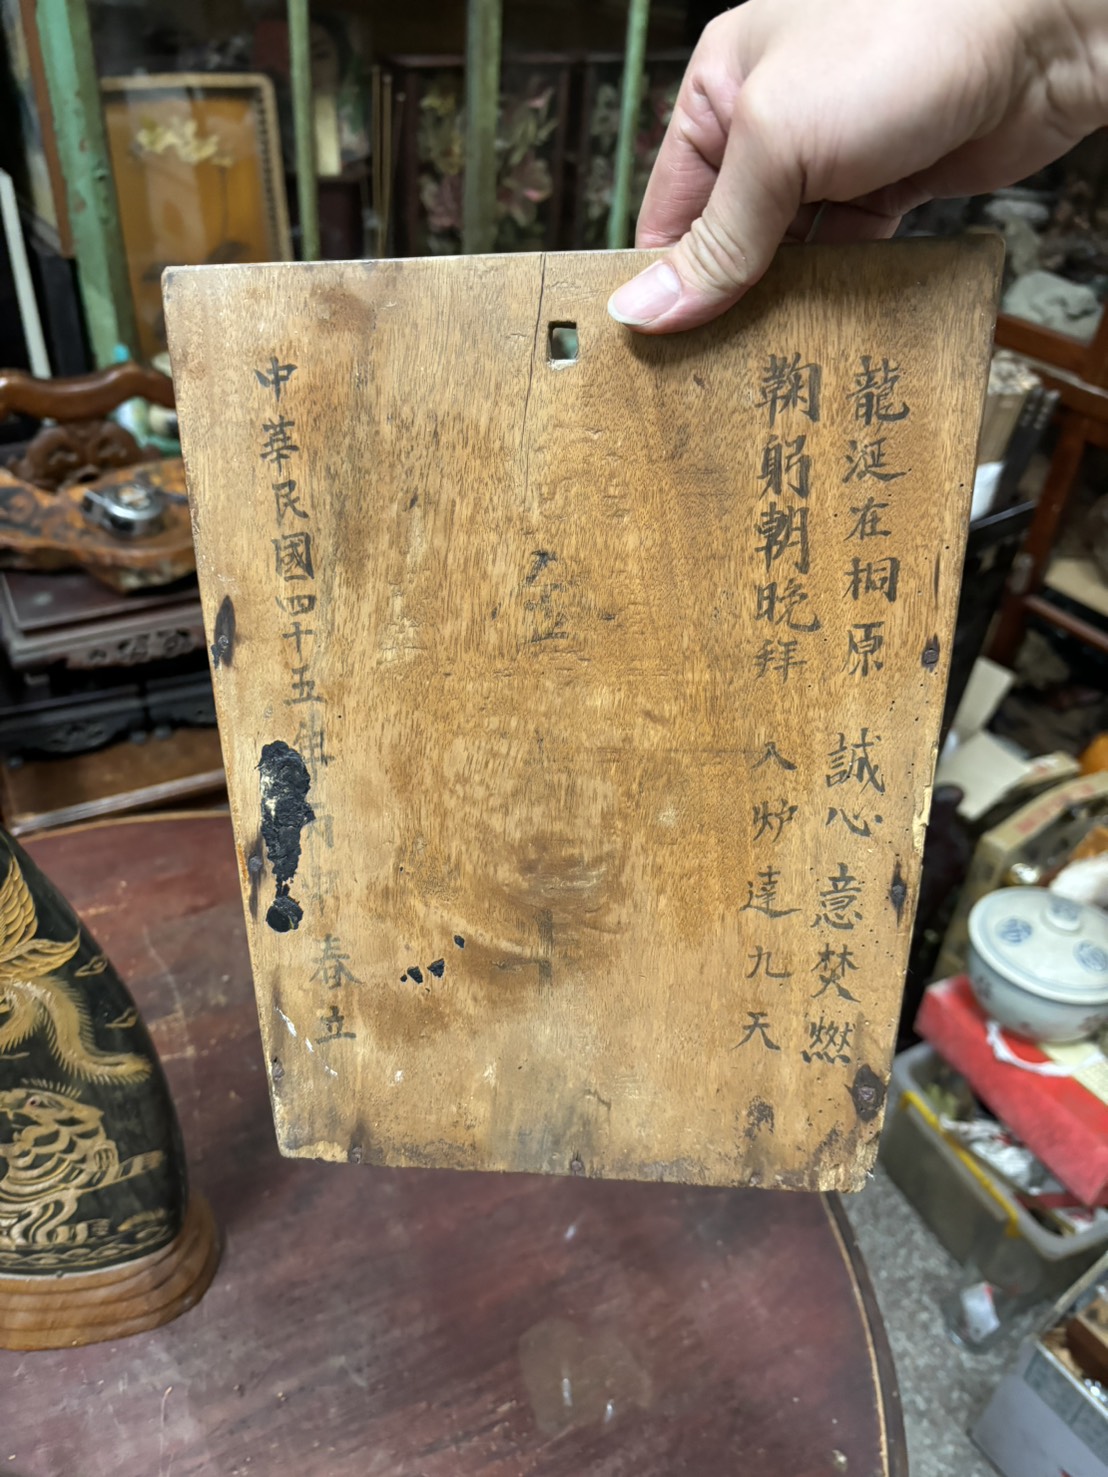 龍涎在桐原 誠心意焚燃
鞠躬朝晚拜 入炉達九天
中華民國四十五年丙申春立